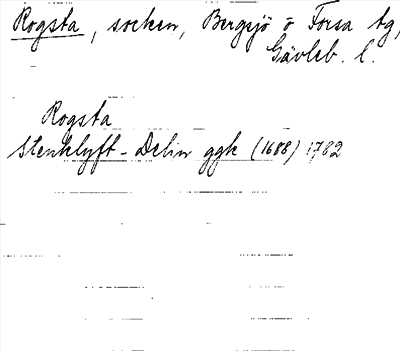 Rogsta, socken, Bergsjö o Forsa tg,
Gävleb. l.
Rogsta
Stenklyft - Delin ggk (1688) 1782